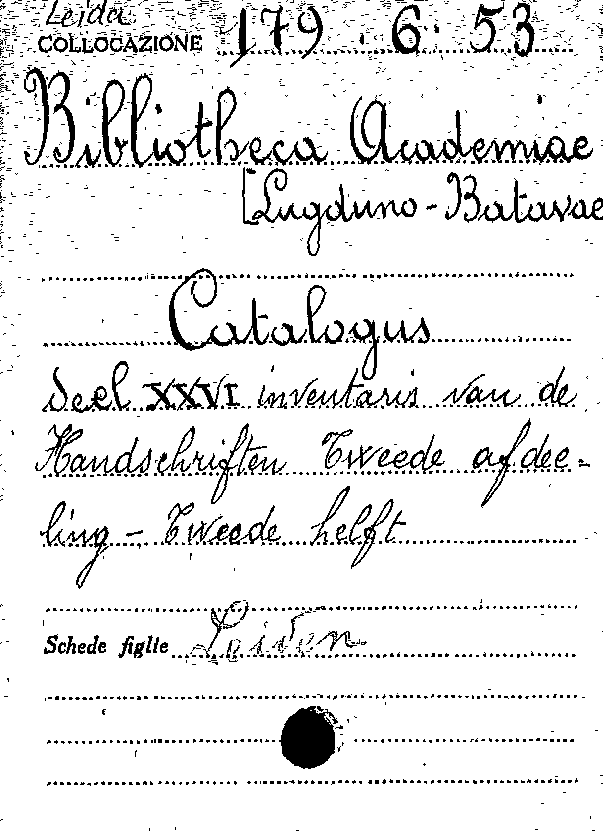 Leida
COLLOCAZIONE 179.6.53
Bibliotheca Academiae
[Lugduno-Batavae
Catalogus
deel XXVI inventaris van de
Handschriften Tweede afdee-
ling - Tweede helft
Schede figlie Leiden